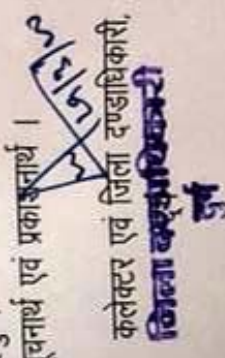 चनार्थ एवं प्रकाशनार्थ ।
कलेक्टर एवं जिला दण्डाधिकारी,
जिला दण्डाधिकारी
दुर्ग